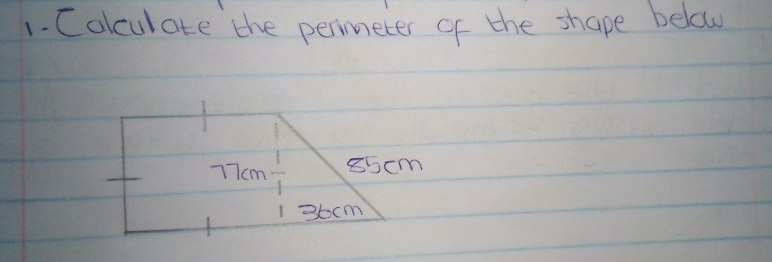 1. Calculate the perimeter of the shape below
77cm
85cm
36cm